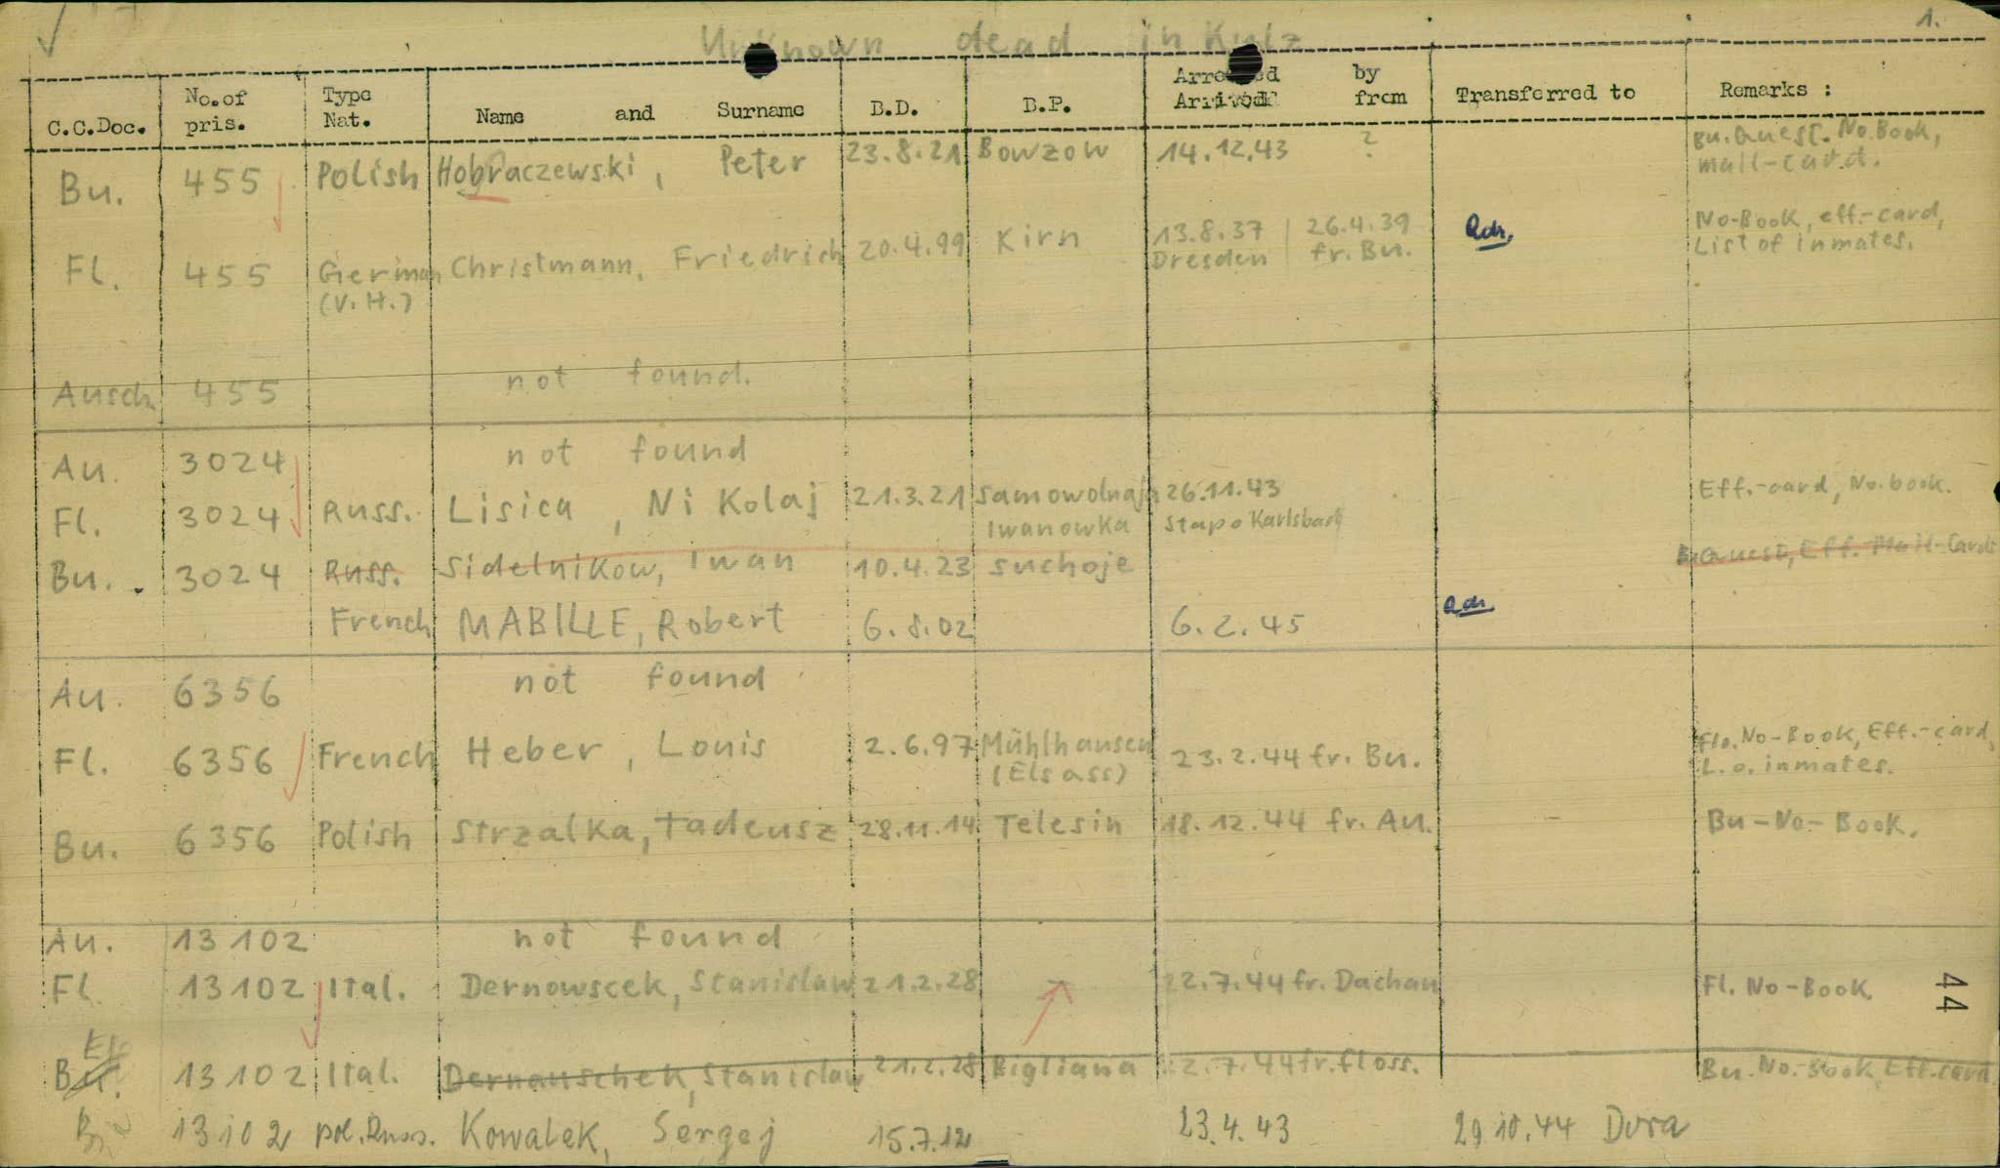 1.
Unknown dead in Kulz
C.C.Doc. No.of pris. Type Nat. Name and Surname B.D. B.P. Arrested by Arrived from Transferred to Remarks :
Bu. 455 Polish Hobraczewski, Peter 23.8.21 Bowzow 14.12.43 ? Bu. Quest. No. Book,
mail-card.
Fl. 455 German Christmann, Friedrich 20.4.99 Kirn 13.8.37 | 26.4.39 No-Book, eff.-card,
(V.H.) Dresden fr. Bu. List of inmates.
Ausch. 455 not found.
Au. 3024 not found
Fl. 3024 Russ. Lisica, Nikolaj 21.3.21 Samowolnaja 26.11.43 Eff.-card, No. book.
Iwanowka Stapo Karlsbad
Bu. 3024 Russ. Sidelnikow, Iwan 10.4.23 Suchoje Quest, Eff. Mail-Cards
French MABILLE, Robert 6.8.02 6.2.45
Au. 6356 not found
Fl. 6356 French Heber, Louis 2.6.97 Mühlhausen 23.2.44 fr. Bu. Flo. No-Book, Eff.-card,
(Elsass) L.o. inmates.
Bu. 6356 Polish Strzalka, Tadeusz 28.11.14 Telesin 18.12.44 fr. Au. Bu-No-Book.
Au. 13102 not found
Fl 13102 Ital. Dernowscek, Stanislaw 21.2.28 22.7.44 fr. Dachau Fl. No-Book.
44
Bu. 13102 Ital. Dernauschek, Stanislaw 21.2.28 Bigliana 22.7.44 fr. Floss. Bu. No.-Book, Eff.card
Bu 13102 pol. Russ. Kowalek, Sergej 15.7.12 23.4.43 29.10.44 Dora